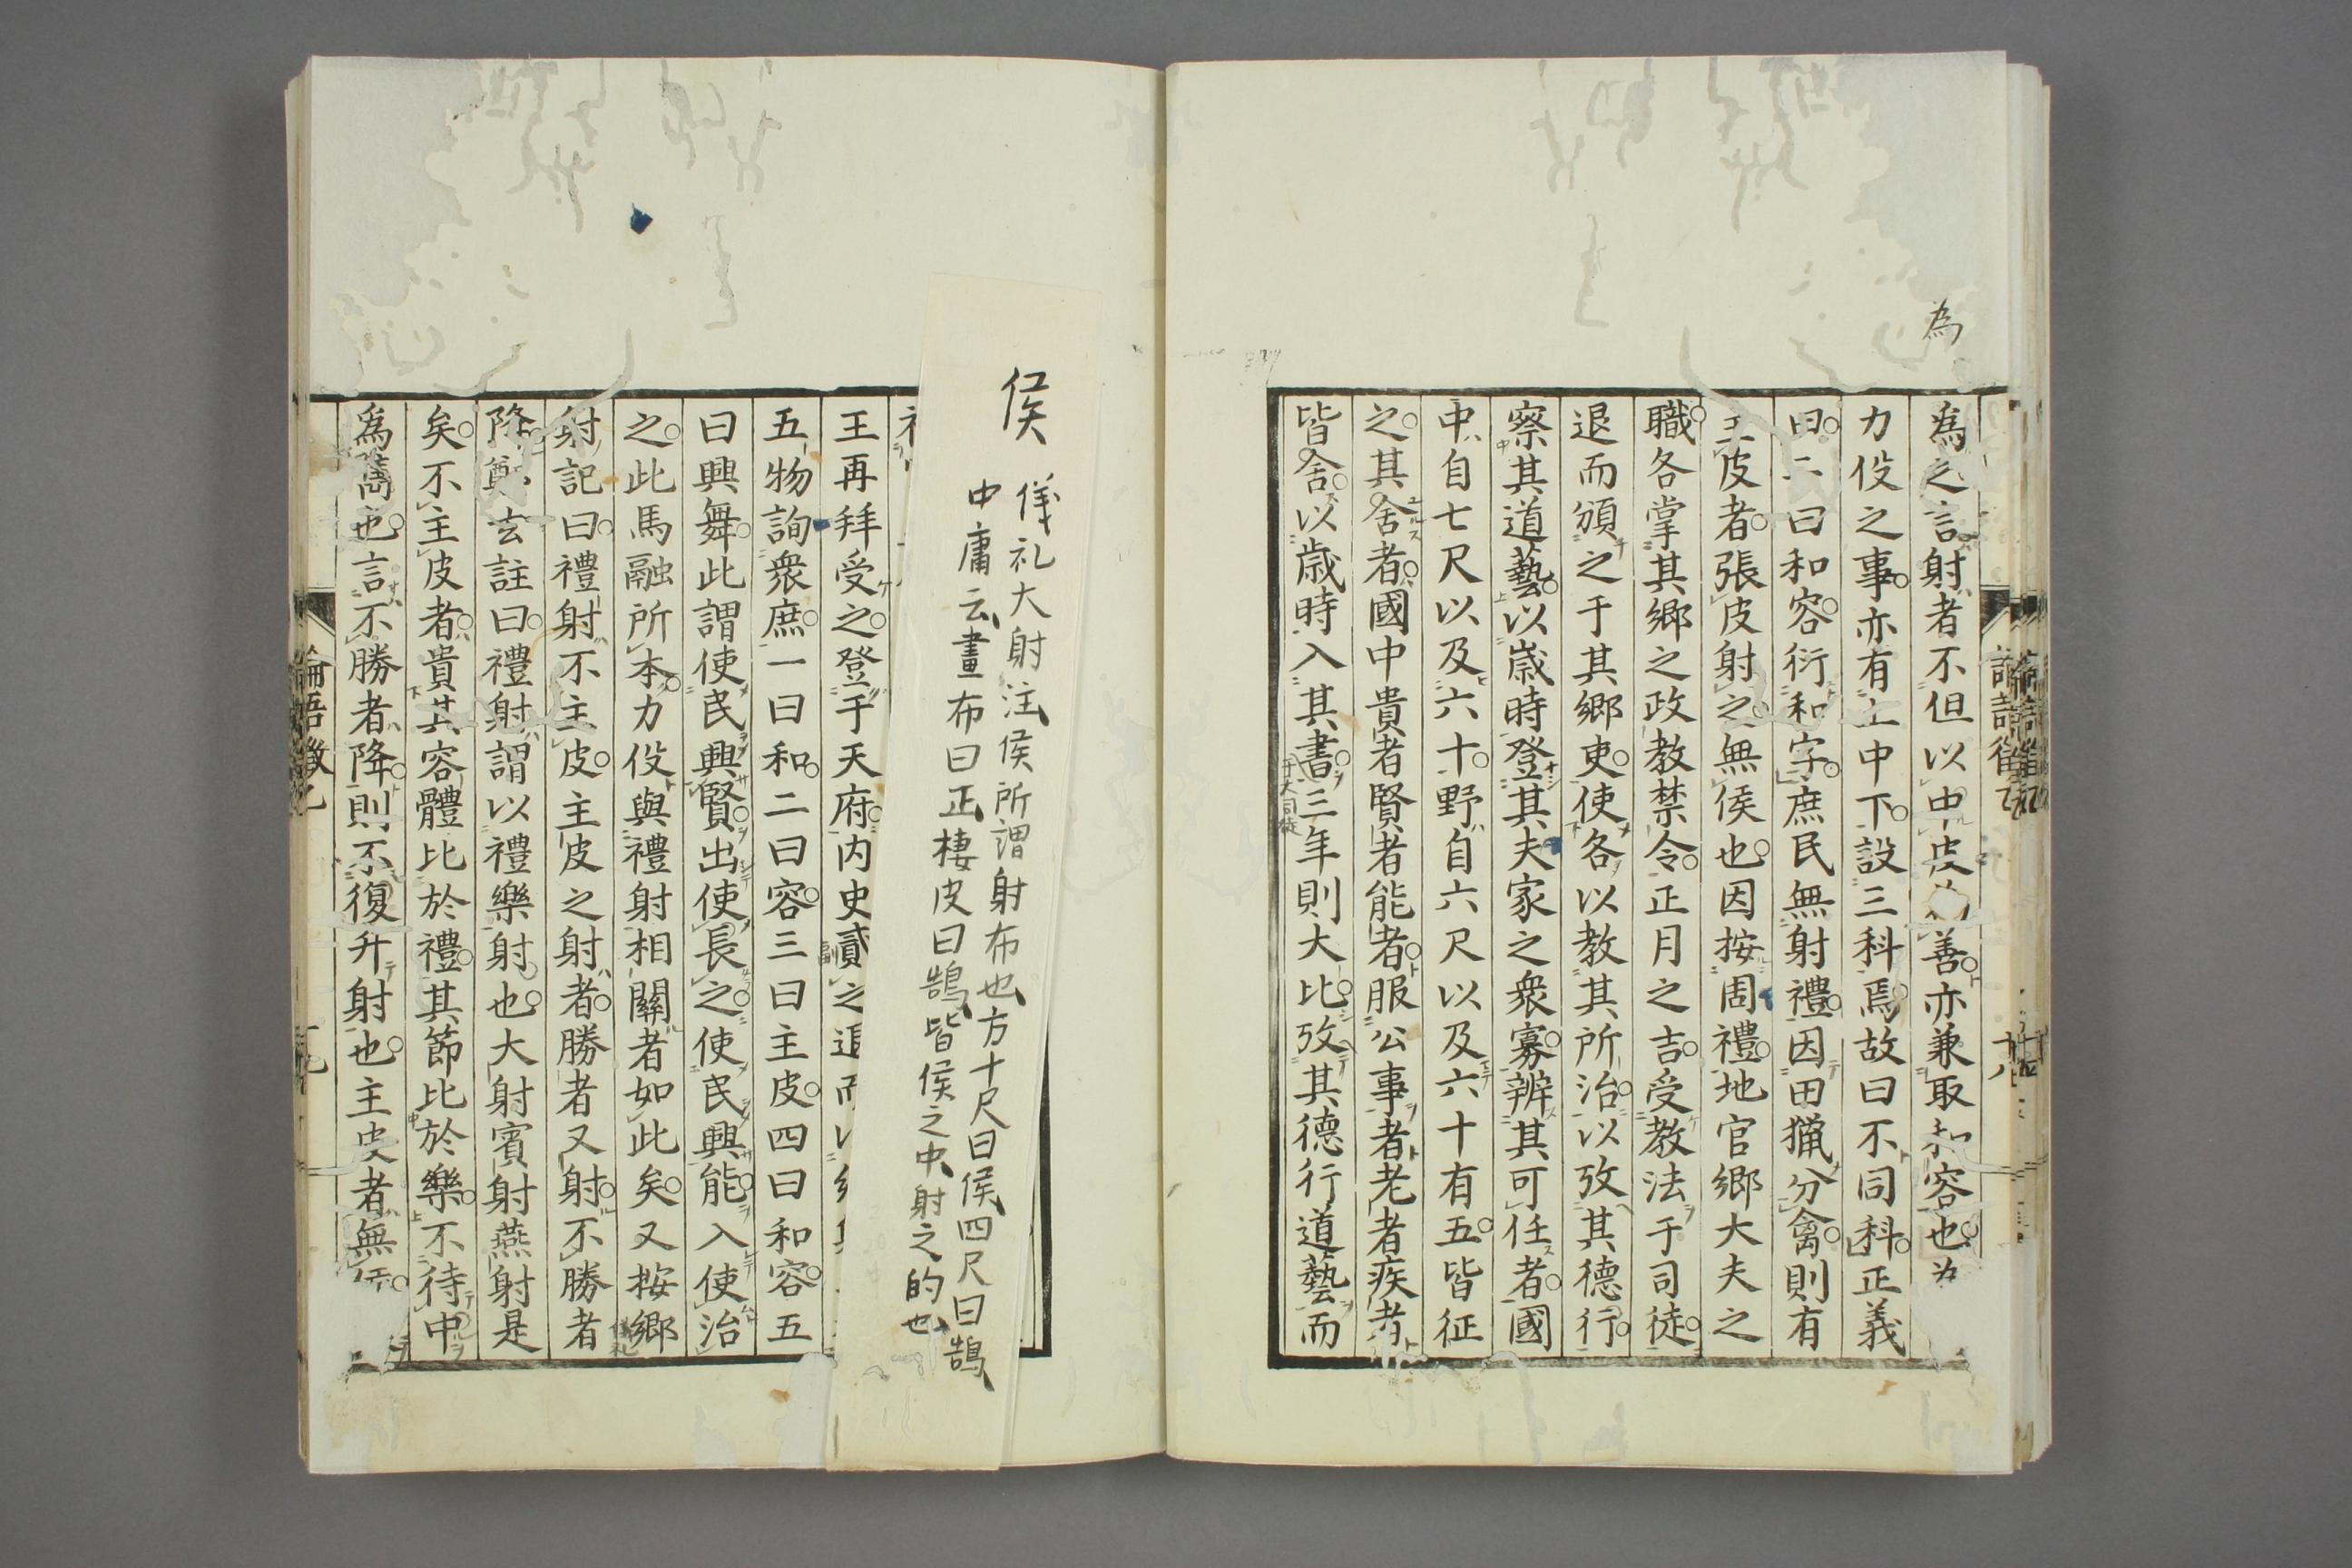 為
為之言射者不但以中皮為善亦兼取和容也為
力役之事亦有上中下設三科焉故曰不同科正義
曰二曰和容衍和字庶民無射禮因田獵分禽則有
主皮者張皮射之無侯也因按周禮地官鄉大夫之
職各掌其鄉之政教禁令正月之吉受教法于司徒
退而頒之于其鄉吏使各以教其所治以攷其德行
察其道藝以歲時登其夫家之衆寡辨其可任者國
中自七尺以及六十野自六尺以及六十有五皆征
之其舍者國中貴者賢者能者服公事者老者疾者
皆舍以歲時入其書三年則大比攷其德行道藝而
于大司徒
侯
儀礼大射注侯所謂射布也方十尺曰侯四尺曰鵠
中庸云畫布曰正棲皮曰鵠皆侯之中射之的也
王再拜受之登于天府内史貳之退而以
副
五物詢衆庶一曰和二曰容三曰主皮四曰和容五
曰興舞此謂使民興賢出使長之使民興能入使治
之此馬融所本力役與禮射相關者如此矣又按鄉
儀礼
射記曰禮射不主皮主皮之射者勝者又射不勝者
降鄭玄註曰禮射謂以禮樂射也大射賓射燕射是
矣不主皮者貴其容體比於禮其節比於樂不待中
為雋也言不勝者降則不復升射也主皮者無
論語徵乙